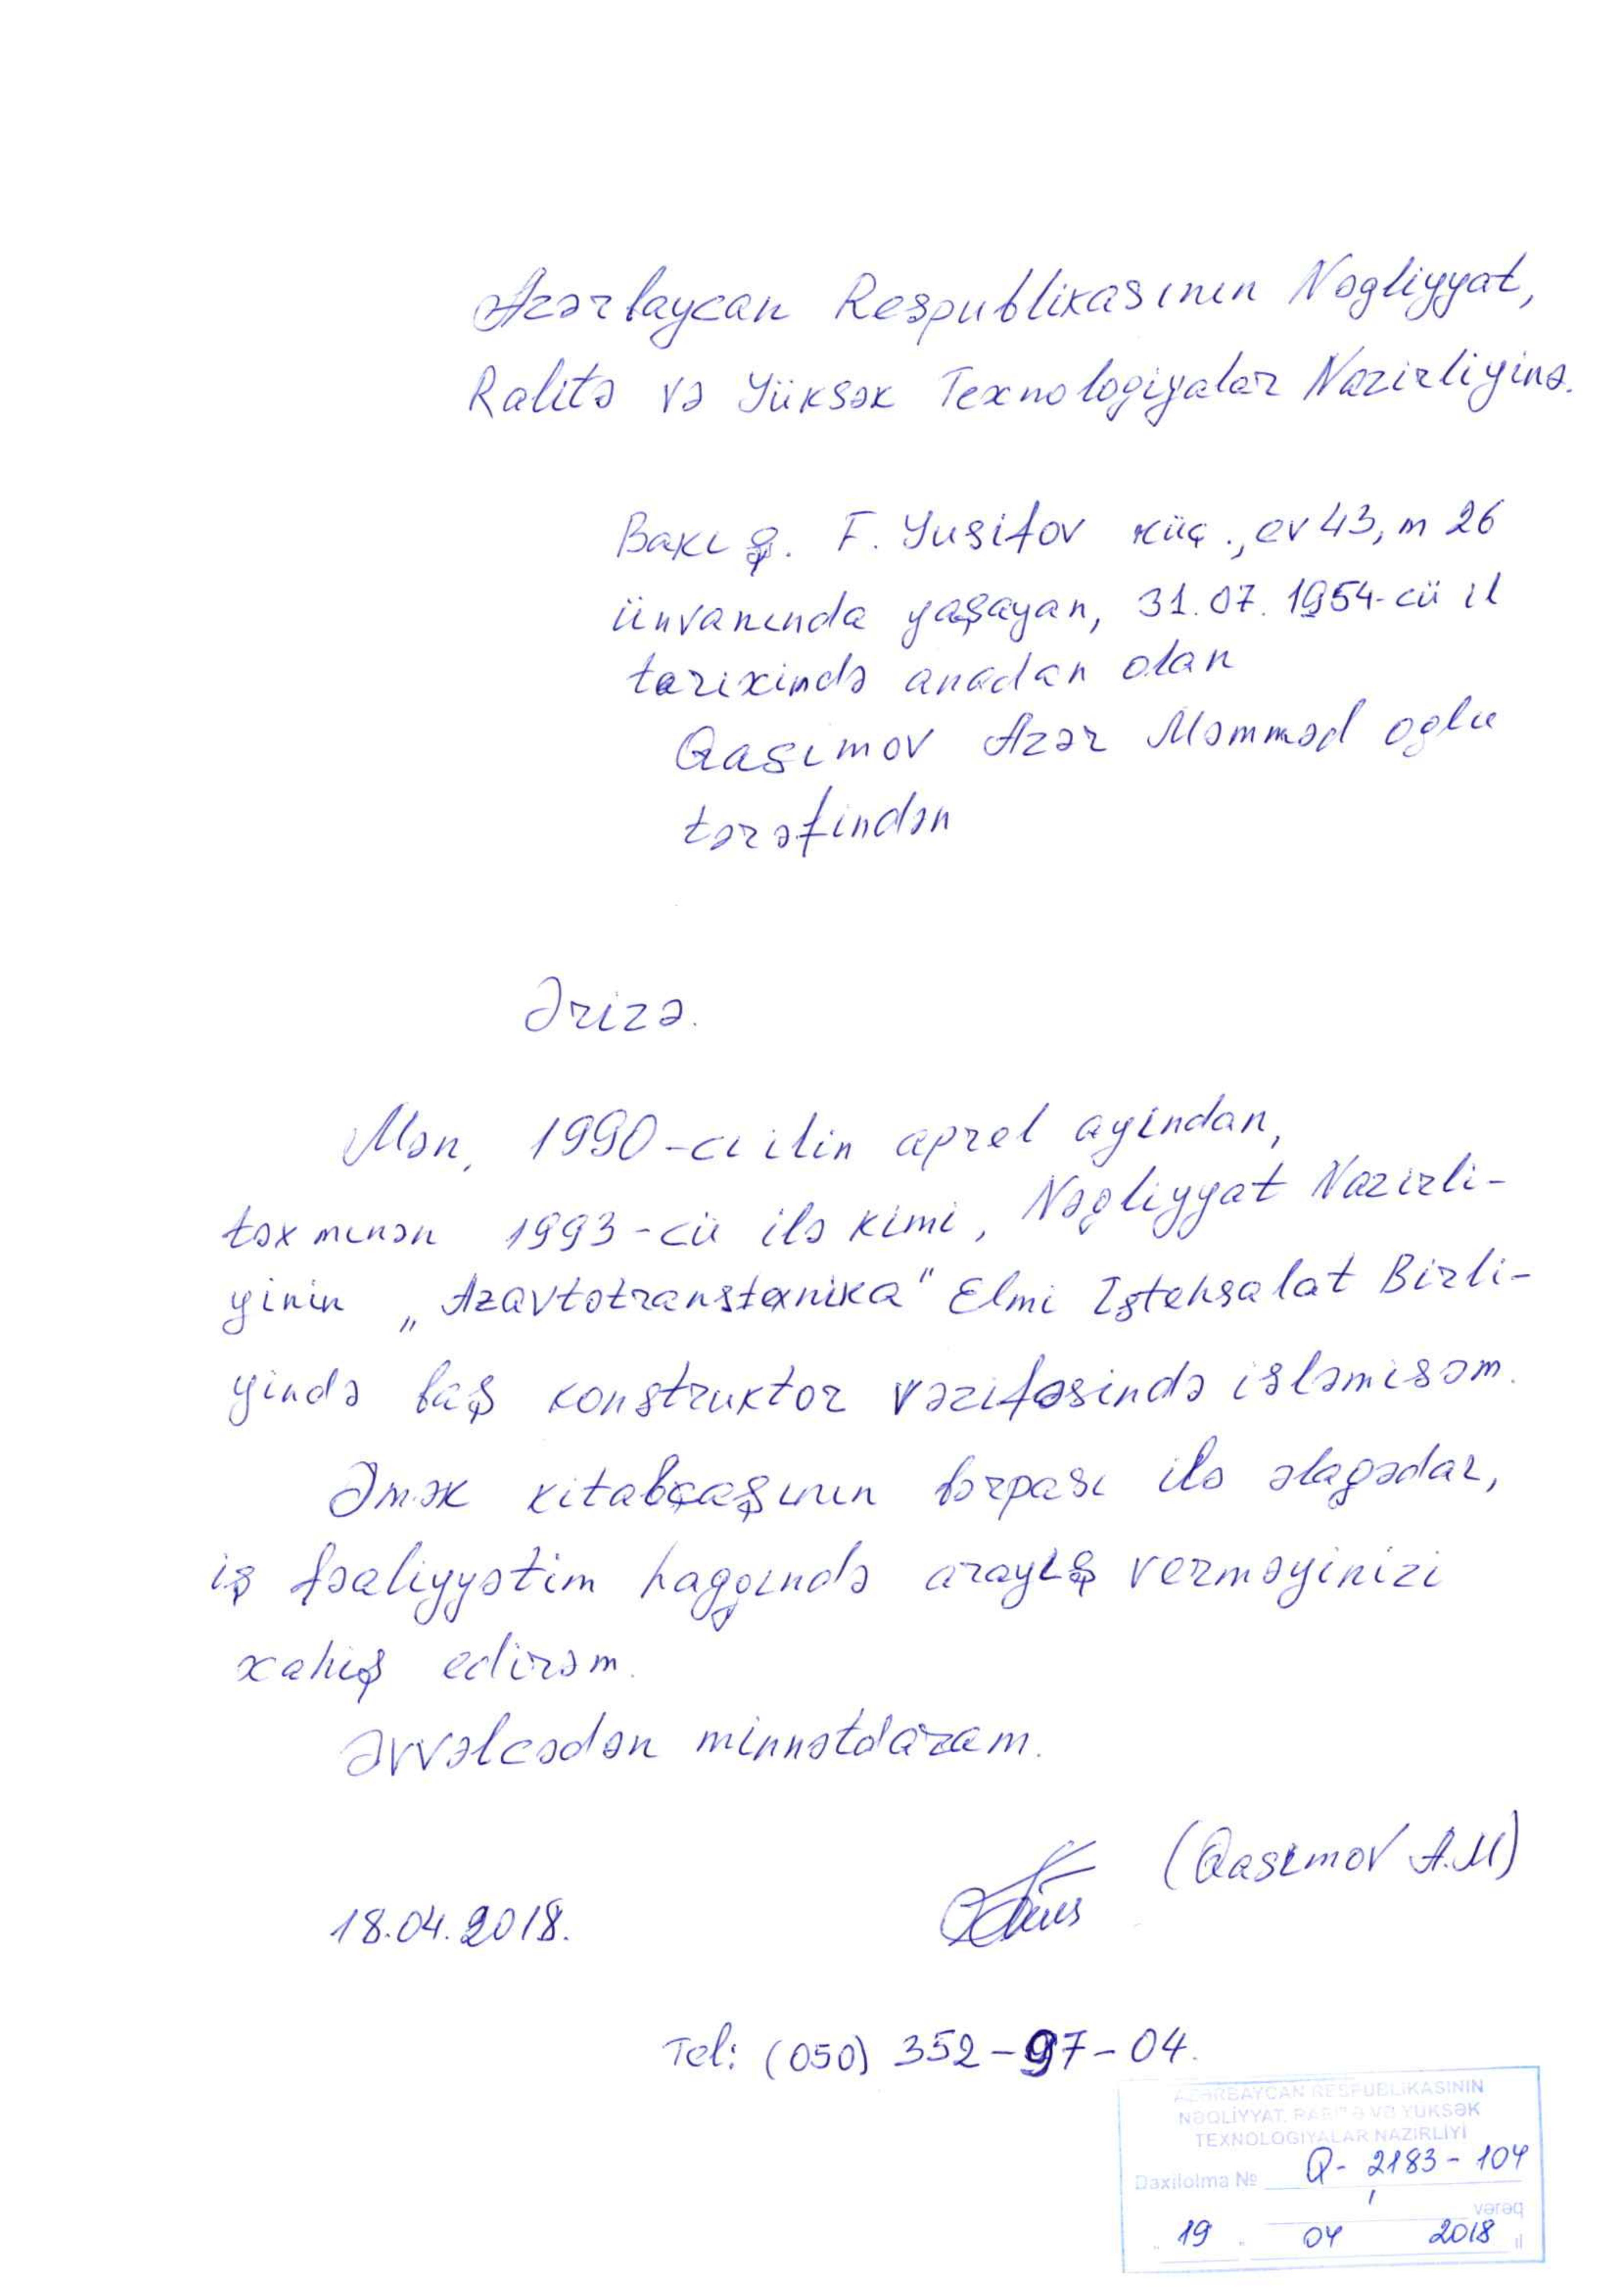 Azərbaycan Respublikasının Nəqliyyat,
Rabitə və Yüksək Texnologiyalar Nazirliyinə.
Bakı ş. F. Yusifov küç., ev 43, m 26
ünvanında yaşayan, 31.07.1954-cü il
tarixində anadan olan
Qasımov Azər Məmməd oglu
tərəfindən
Ərizə.
Mən, 1990-cı ilin aprel ayından,
təxminən 1993-cü ilə kimi, Nəqliyyat Nazirli-
yinin „Azavtotranstexnika" Elmi Istehsalat Birli-
yində baş konstruktor vəzifəsində işləmişəm.
Əmək kitabçasının bərpası ilə əlaqədar,
iş fəaliyyətim haqqında arayış verməyinizi
xahiş edirəm.
Əvvəlcədən minnətdaram.
(Qasımov A.M)
18.04.2018.
Tel: (050) 352-97-04.
AZƏRBAYCAN RESPUBLİKASININ
NƏQLİYYAT, RABİTƏ VƏ YÜKSƏK
TEXNOLOGİYALAR NAZİRLİYİ
Daxilolma № Q-2183-104
vərəq
19 04 2018 il